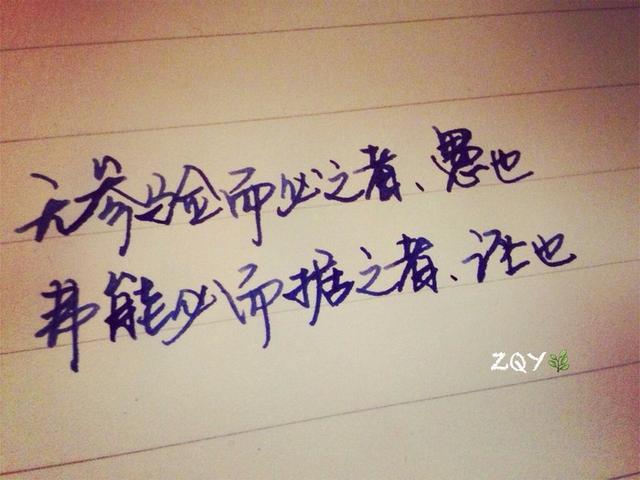 无参验而必之者、愚也
弗能必而据之者、诬也
ZQY